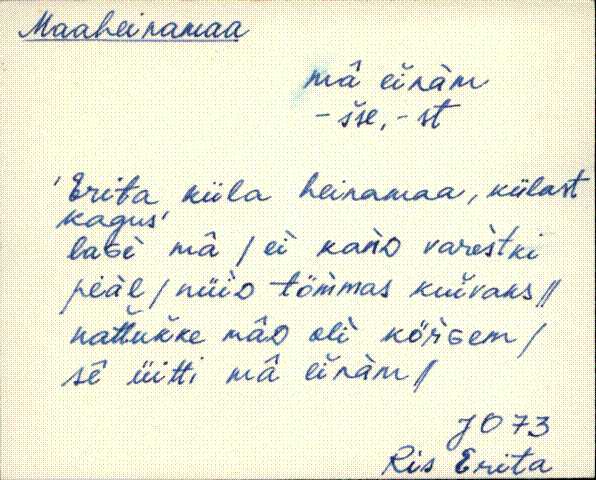 Maaheinamaa
mâ eĭnàm
-šse, -st
'Erita küla heinamaa, külast
kagus'
laɢè mâ / èi kanᴅ varèstki
pèàl / nüiᴅ tömmas kuĭvaks //
nattukke mâᴅ olì köŕɢem /
sê üitti mâ eĭnàm //
JO 73
Ris Erita